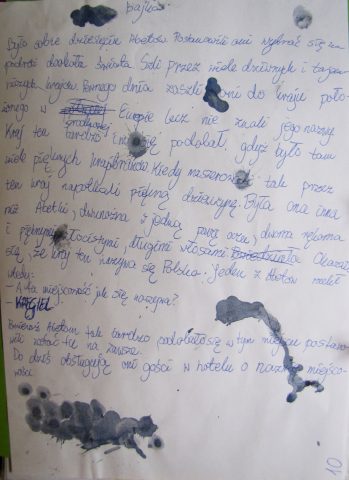 Bajka
Było sobie dziesięciu Abetów Postanowili oni wybrać się na
podróż dookoła świata Szli przez wiele dziwnych i
krajów. Pewnego dnia zaszli oni do kraju poło-
żonego w Europie lecz nie znali jego nazwy
Kraj ten bardzo się podobał, gdyż było tam
wiele pięknych krajobrazów. Kiedy maszerowali tak przez
ten kraj napotkali piękną dziewczynę. Była ona inna
niż Abetki, dwunożna z jedną parą oczu,
i pięknymi złocistymi, długimi włosami Okazało
się, że kraj ten nazywa się Polska. Jeden z Abetów
wtedy:
- A ta miejscowość jak się nazywa?
- KĄGIEL
Ponieważ Abetom tak bardzo podobało się w tym miejscu postano-
wili zostać tu na zawsze.
Do dziś obsługują oni gości w hotelu o nazwie miejsco-
wości
10